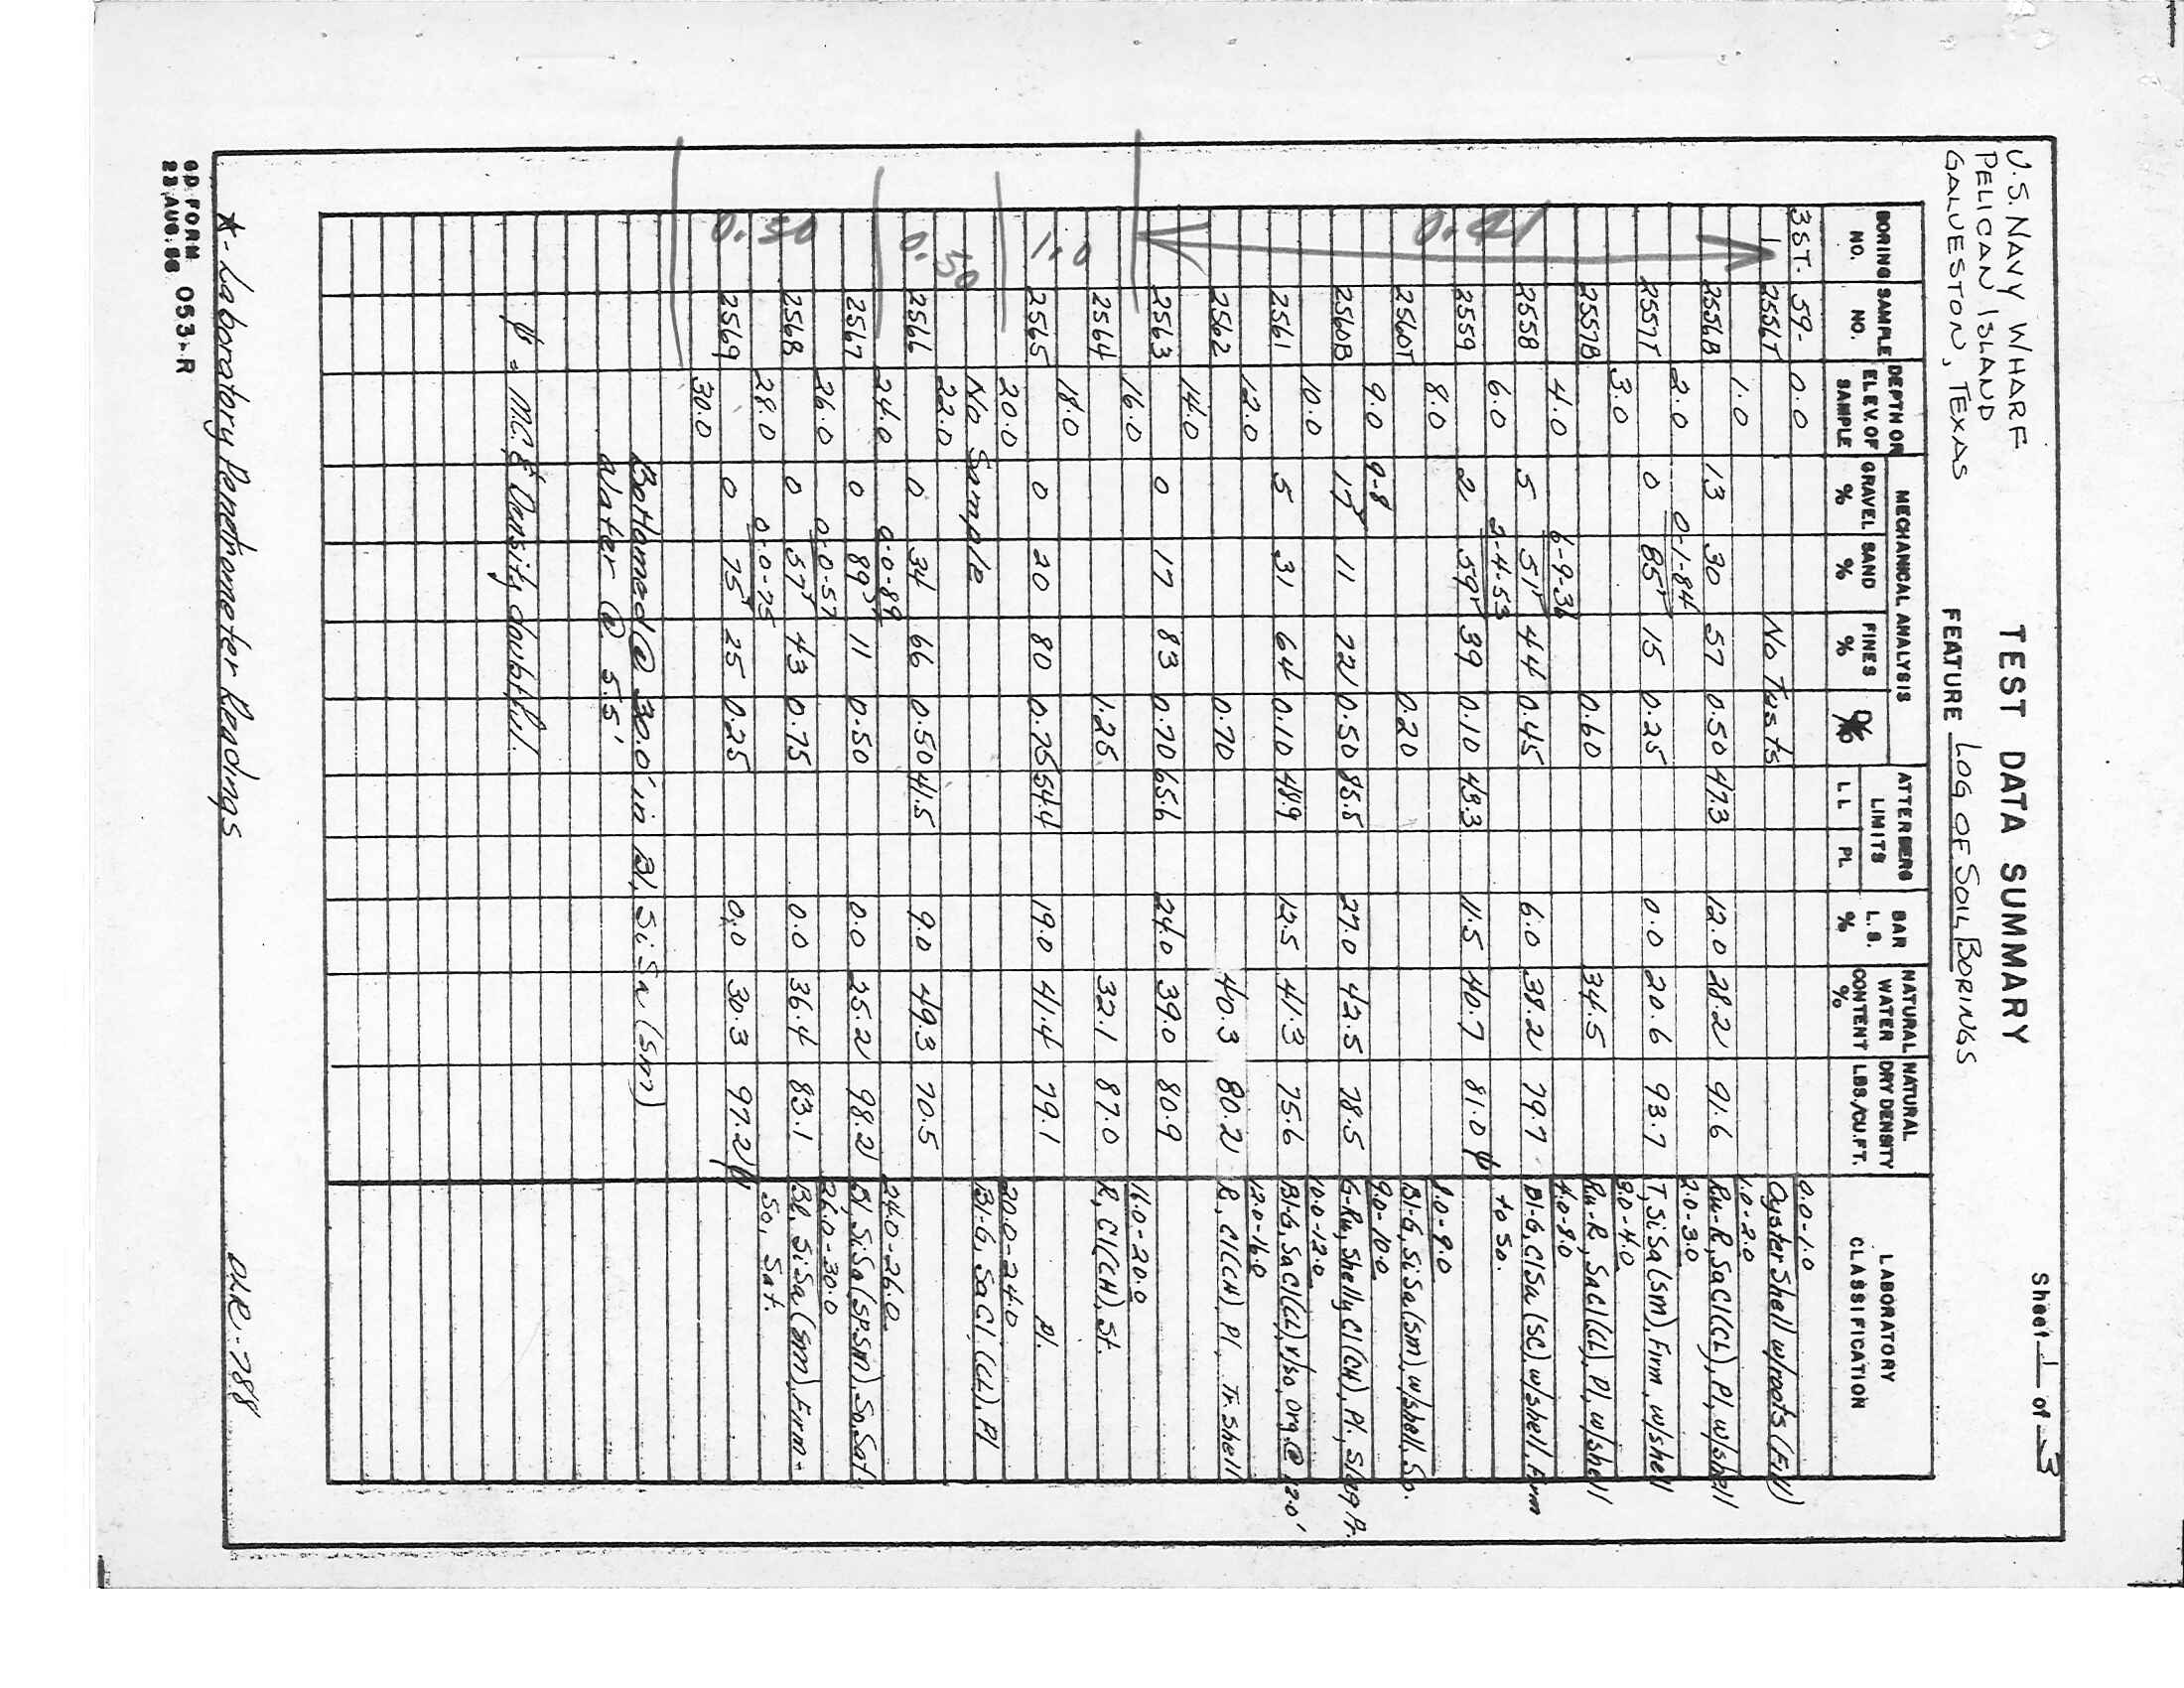 U.S. NAVY WHARF
PELICAN ISLAND
GALVESTON, TEXAS
TEST DATA SUMMARY
FEATURE LOG OF SOIL BORINGS
Sheet 1 of 3
BORING NO. SAMPLE NO. DEPTH OR ELEV. OF SAMPLE MECHANICAL ANALYSIS GRAVEL % SAND % FINES % ATTERBERG LIMITS LL PL BAR L.S. % NATURAL WATER CONTENT % NATURAL DRY DENSITY LBS./CU.FT. LABORATORY CLASSIFICATION
3ST. 59- 0.0 0.0-1.0
1 2556T No Tests Oyster Shell w/roots (Fill)
1.0 1.0-2.0
2556B 13 30 57 0.50 47.3 12.0 28.2 91.6 Ru-R, SaCl(CL), Pl, w/shell
2.0 0-1-84 2.0-3.0
2557T 0 85 15 0.25 0.0 20.6 93.7 T, SiSa(SM), Firm, w/shell
3.0 3.0-4.0
2557B 0.60 34.5 Ru-R, SaCl(CL), Pl, w/shell
4.0 6-9-36 4.0-8.0
2558 5 51 44 0.45 6.0 38.2 79.7 Bl-G, ClSa(SC), w/shell, Firm
6.0 2-4-53 to So.
2559 2 59 39 0.10 43.3 11.5 40.7 81.0 ψ
8.0 8.0-9.0
2560T 0.20 Bl-G, SiSa(SM), w/shell, So.
9.0 9-8 9.0-10.0
2560B 17 11 72 0.50 85.5 27.0 42.5 78.5 G-Ru, Shelly Cl(CH), Pl.,
10.0 10.0-12.0
2561 5 31 64 0.10 48.9 12.5 41.3 75.6 Bl-G, SaCl(CL), v/so, org. @ 12.0'
12.0 12.0-16.0
2562 0.70 40.3 80.2 R, Cl(CH), Pl, Tr. Shell
14.0
2563 0 17 83 0.70 65.6 24.0 39.0 80.9
16.0 16.0-20.0
2564 1.25 32.1 87.0 R, Cl(CH), St.
18.0
2565 0 20 80 0.75 54.4 19.0 41.4 79.1 Pl.
20.0 20.0-24.0
No Sample Bl-G, SaCl (CL), Pl
22.0
2566 0 34 66 0.50 41.5 9.0 49.3 70.5
24.0 0-0-89 24.0-26.0
2567 0 89 11 0.50 0.0 25.2 98.2 Bl, SiSa(SP-SM), So, Sat
26.0 0-0-57 26.0-30.0
2568 0 57 43 0.75 0.0 36.4 83.1 Bl, SiSa(SM), Firm-
28.0 0-0-75 So, Sat.
2569 0 75 25 0.25 0.0 30.3 97.2 ψ
30.0
0.41
1.0
0.50
0.50
Bottomed @ 30.0' in Bl, SiSa (SM)
Water @ 5.5'
ψ = M.C. & Density doubtful.
*- Laboratory Penethrometer Readings
GD FORM 053-R
23 AUG. 66